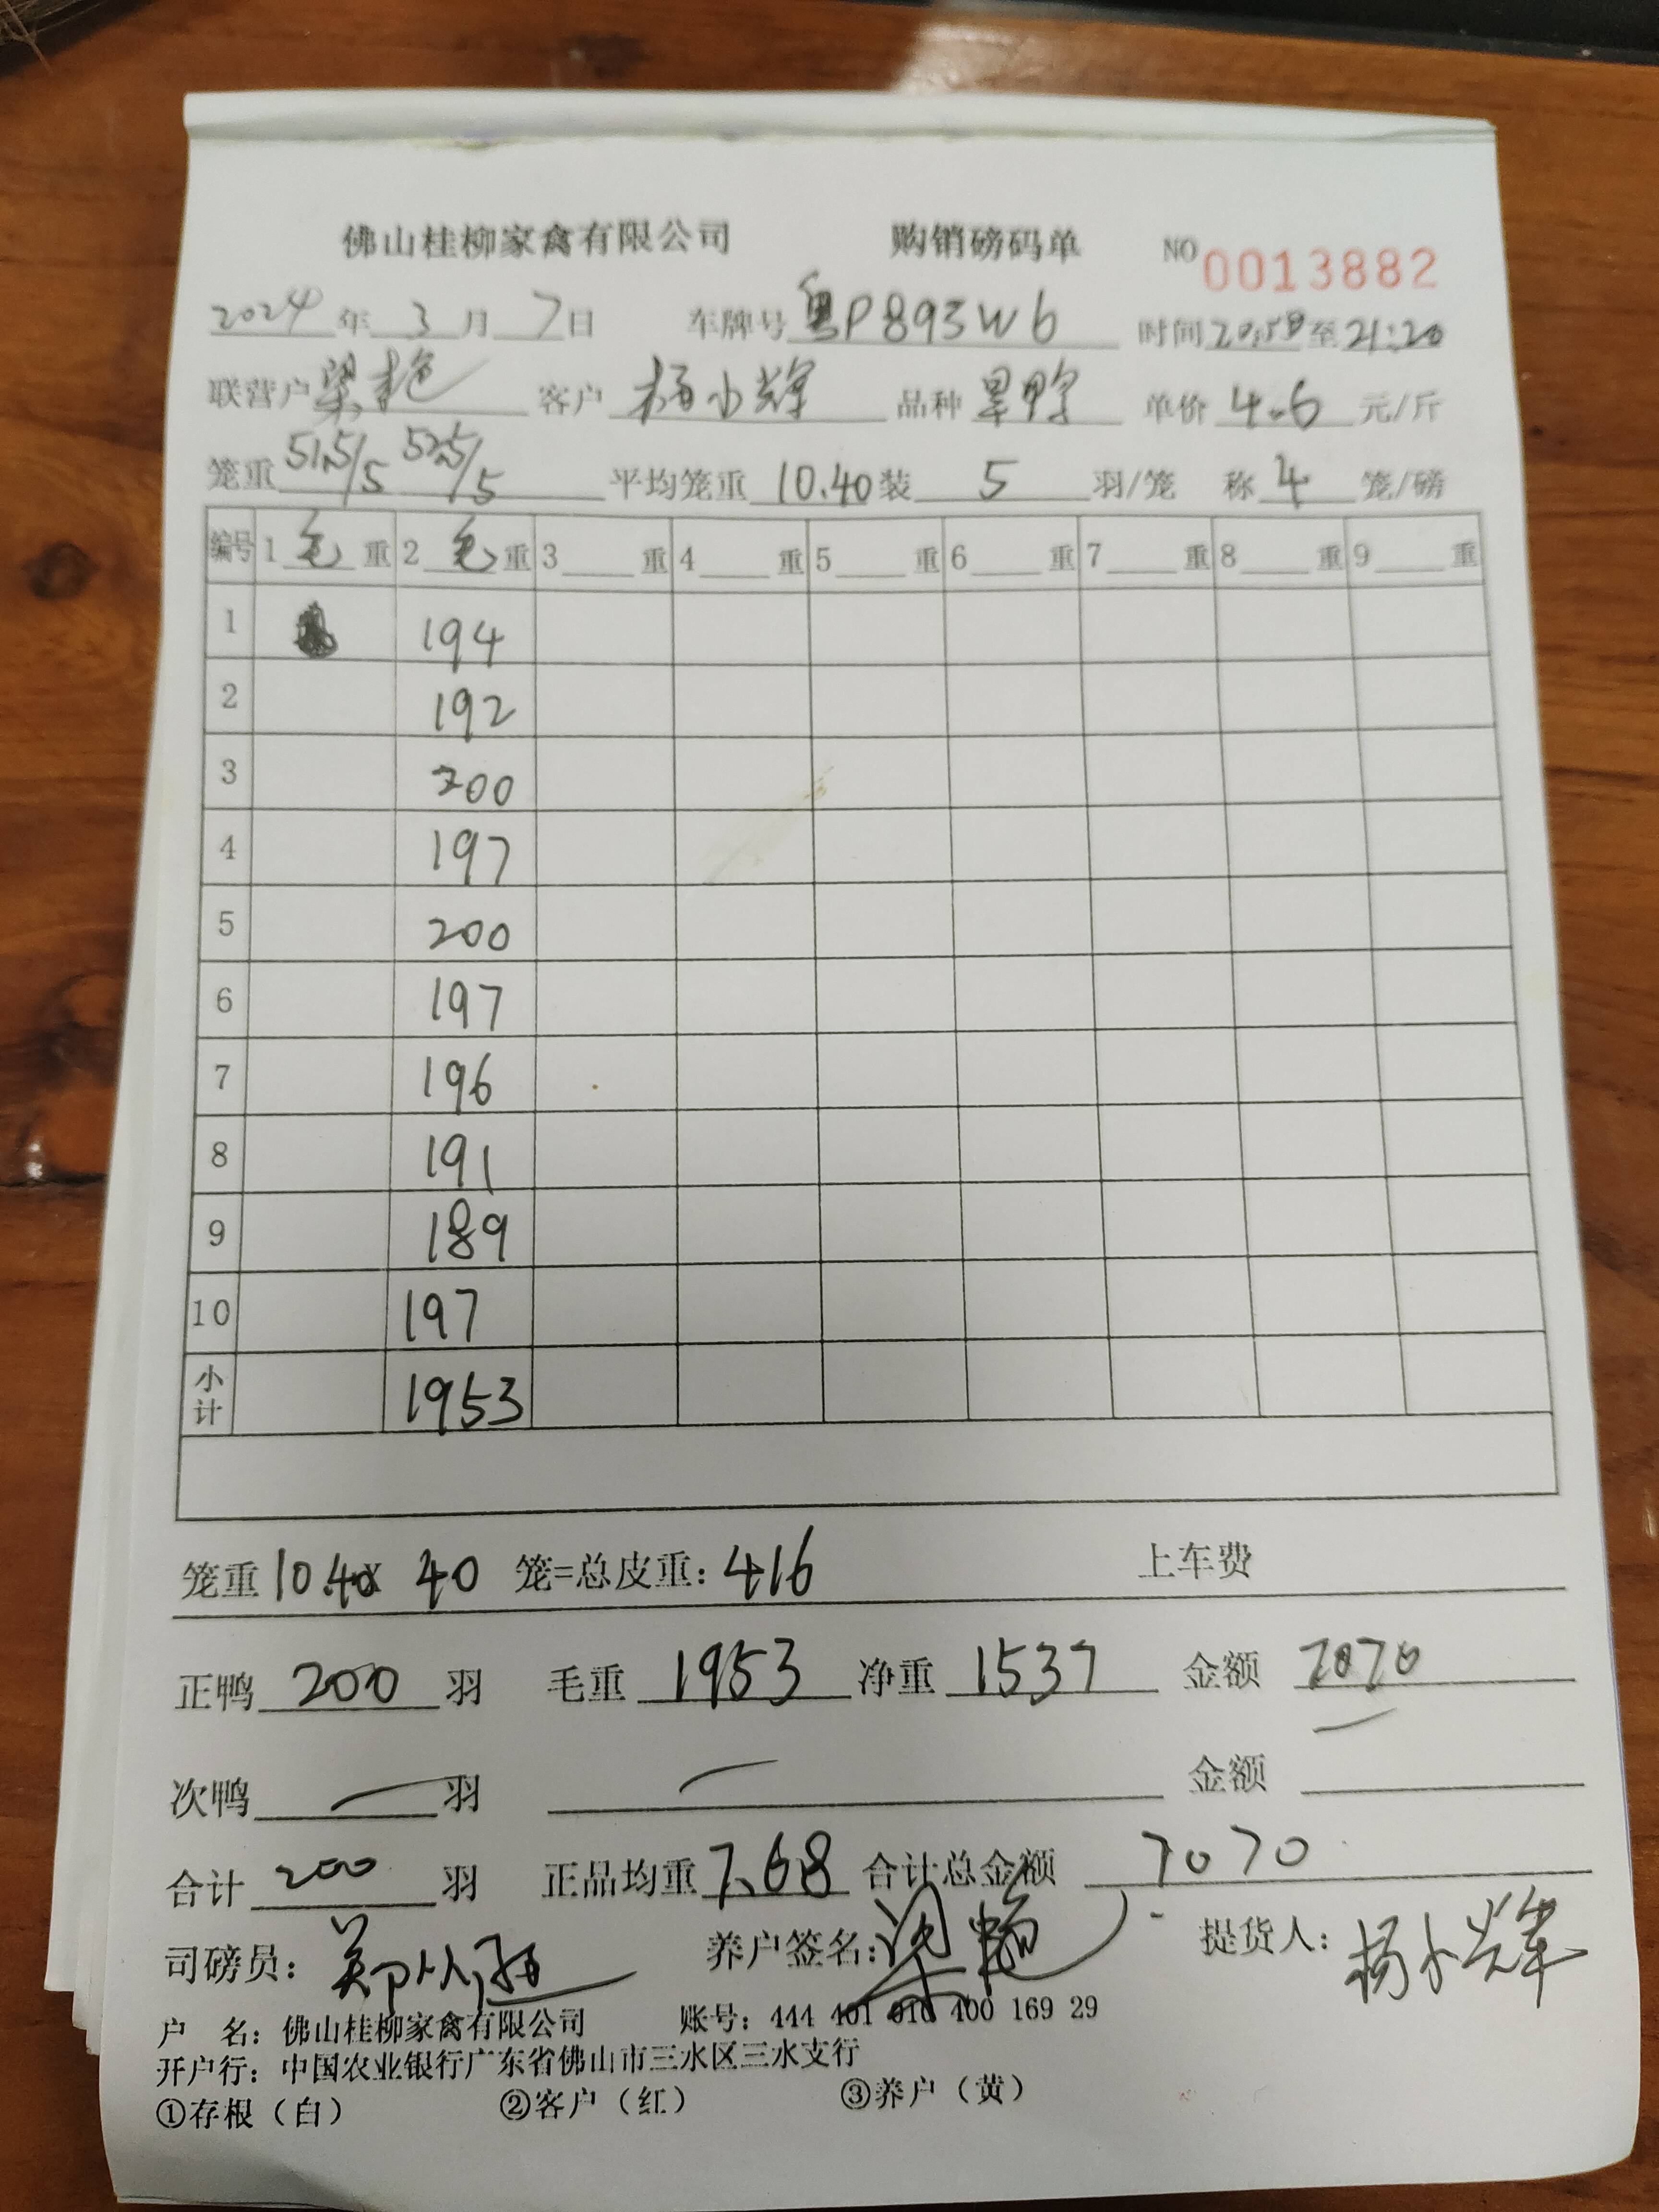 佛山桂柳家禽有限公司 购销磅码单 NO 0013882
2024年 3月 7日 车牌号 粤P893W6 时间 20:58 至 21:20
联营户 梁艳 客户 杨小辉 品种 旱鸭 单价 4.6 元/斤
笼重 51.5/5 52.5/5 平均笼重 10.40 装 5 羽/笼 称 4 笼/磅
编号 1 毛 重 2 毛 重 3 重 4 重 5 重 6 重 7 重 8 重 9 重
1 194
2 192
3 200
4 197
5 200
6 197
7 196
8 191
9 189
10 197
小计 1953
笼重 10.40 x 40 笼=总皮重: 416 上车费
正鸭 200 羽 毛重 1953 净重 1537 金额 7070
次鸭 — 羽 — 金额
合计 200 羽 正品均重 7.68 合计总金额 7070
司磅员: 养户签名: 梁艳 提货人: 杨小辉
户 名: 佛山桂柳家禽有限公司 账号: 444 401 010 400 169 29
开户行: 中国农业银行广东省佛山市三水区三水支行
①存根（白） ②客户（红） ③养户（黄）